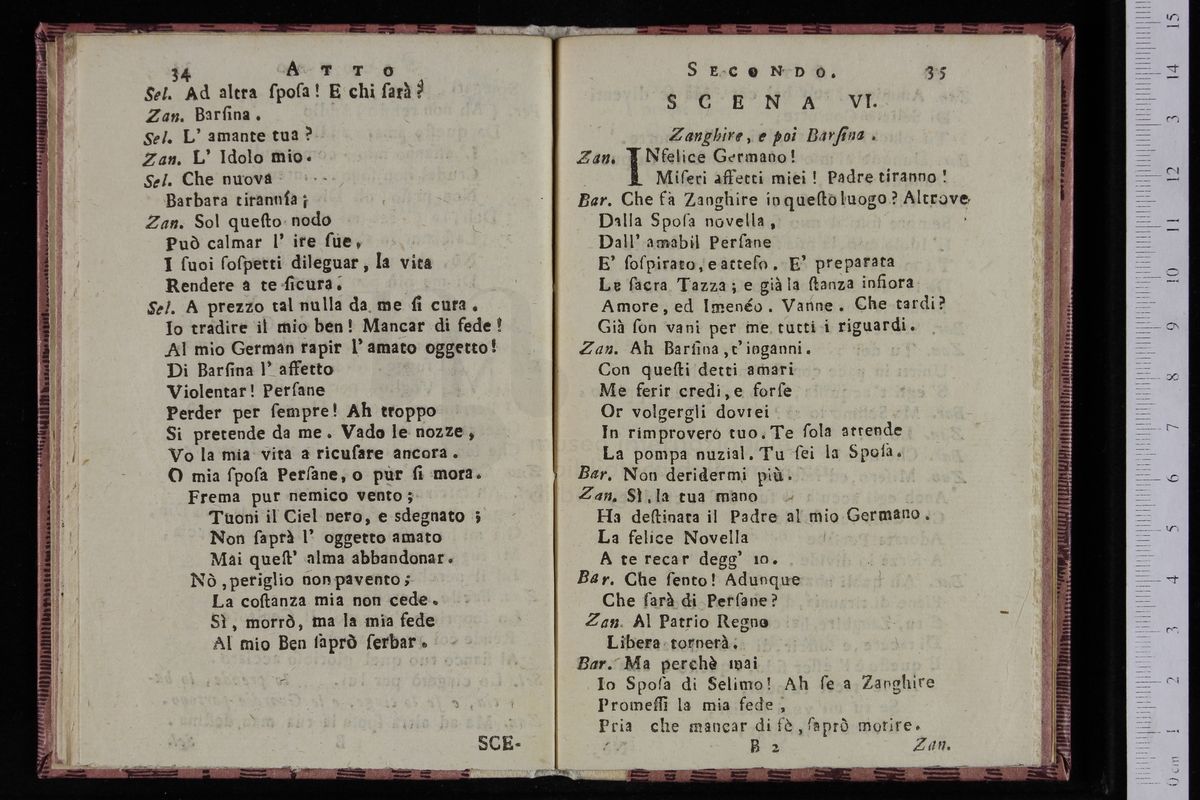 34 ATTO
Sel. Ad altra ſpoſa! E chi ſarà?
Zan. Barſina.
Sel. L' amante tua?
Zan. L' Idolo mio.
Sel. Che nuova
Barbara tirannía;
Zan. Sol queſto nodo
Può calmar l' ire ſue,
I ſuoi ſoſpetti dileguar, la vita
Rendere a te ſicura.
Sel. A prezzo tal nulla da me ſi cura.
Io tradire il mio ben! Mancar di fede!
Al mio German rapir l' amato oggetto!
Di Barſina l' affetto
Violentar! Perſane
Perder per ſempre! Ah troppo
Si pretende da me. Vado le nozze,
Vo la mia vita a ricuſare ancora.
O mia ſpoſa Perſane, o pur ſi mora.
Frema pur nemico vento;
Tuoni il Ciel nero, e sdegnato;
Non ſaprà l' oggetto amato
Mai queſt' alma abbandonar.
Nò, periglio non pavento;
La coſtanza mia non cede.
Sì, morrò, ma la mia fede
Al mio Ben ſaprò ſerbar.
SCE-
SECONDO. 35
SCENA VI.
Zanghire, e poi Barſina.
Zan. INfelice Germano!
Miſeri affetti miei! Padre tiranno!
Bar. Che fa Zanghire in queſto luogo? Altrove
Dalla Spoſa novella,
Dall' amabil Perſane
E' ſoſpirato, e atteſo. E' preparata
La ſacra Tazza; e già la ſtanza infiora
Amore, ed Imenéo. Vanne. Che tardi?
Già ſon vani per me tutti i riguardi.
Zan. Ah Barſina, t' inganni.
Con queſti detti amari
Me ferir credi, e forſe
Or volgergli dovrei
In rimprovero tuo. Te ſola attende
La pompa nuzial. Tu ſei la Spoſa.
Bar. Non deridermi più.
Zan. Sì, la tua mano
Ha deſtinata il Padre al mio Germano.
La felice Novella
A te recar degg' io.
Bar. Che ſento! Adunque
Che ſarà di Perſane?
Zan. Al Patrio Regno
Libera tornerà.
Bar. Ma perchè mai
Io Spoſa di Selimo! Ah ſe a Zanghire
Promeſſi la mia fede,
Pria che mancar di fè, ſaprò morire.
B 2 Zan.
0 cm 1 2 3 4 5 6 7 8 9 10 11 12 13 14 15